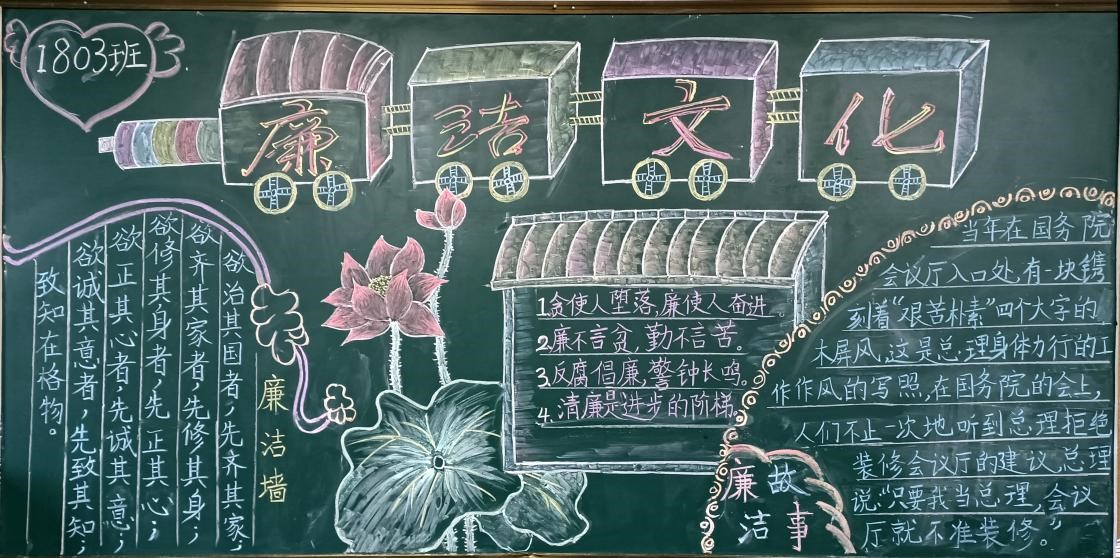 1803班
廉洁文化
欲治其国者,先齐其家;
欲齐其家者,先修其身;
欲修其身者,先正其心;
欲正其心者,先诚其意;
欲诚其意者,先致其知;
致知在格物。
廉洁墙
1.贪使人堕落,廉使人奋进。
2.廉不言贫,勤不言苦。
3.反腐倡廉,警钟长鸣。
4.清廉是进步的阶梯。
廉洁故事
当年在国务院
会议厅入口处,有一块镌
刻着“艰苦朴素”四个大字的
木屏风,这是总理身体力行的工
作作风的写照,在国务院的会上,
人们不止一次地听到总理拒绝
装修会议厅的建议,总理
说:“只要我当总理,会议
厅就不准装修。”